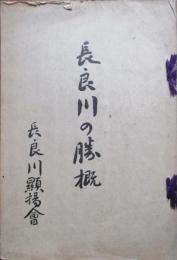 長良川の勝概
長良川顕揚會